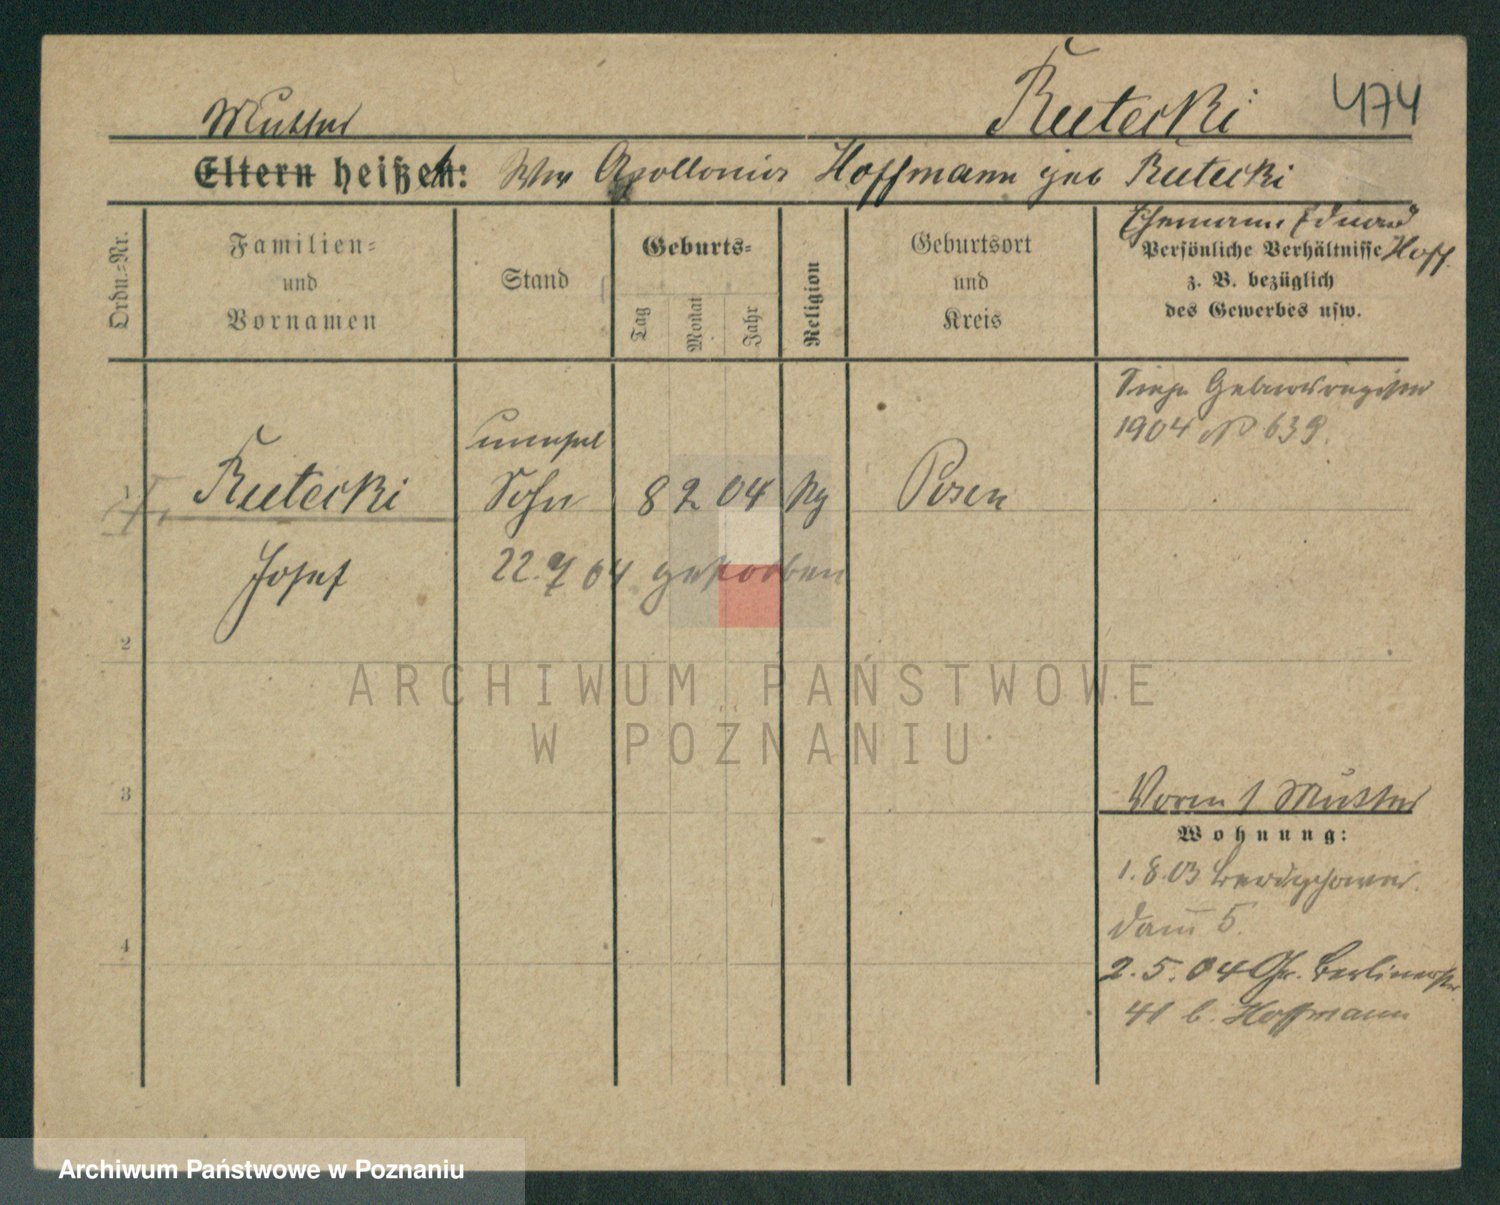 Rutecki 474
Mutter
Eltern heißen: Ww Apollonia Hoffmann geb Rutecki
Ordn.-Nr.
Familien-
und
Vornamen
Stand
Geburts-
Tag
Monat
Jahr
Religion
Geburtsort
und
Kreis
Ehemann Eduard
Hoff.
Persönliche Verhältnisse
z. B. bezüglich
des Gewerbes usw.
Siehe Geburtsregister
1904 № 639.
1
Rutecki
unehel
Sohn
8 2 04
Posen
Josef
22. 7 04 gestorben
2
3
4
Vorm f Mutter
Wohnung:
1. 8. 03
damm 5.
2. 5. 04 Gr. Berlinerstr
41 b. Hoffmann
ARCHIWUM PAŃSTWOWE
W POZNANIU
Archiwum Państwowe w Poznaniu